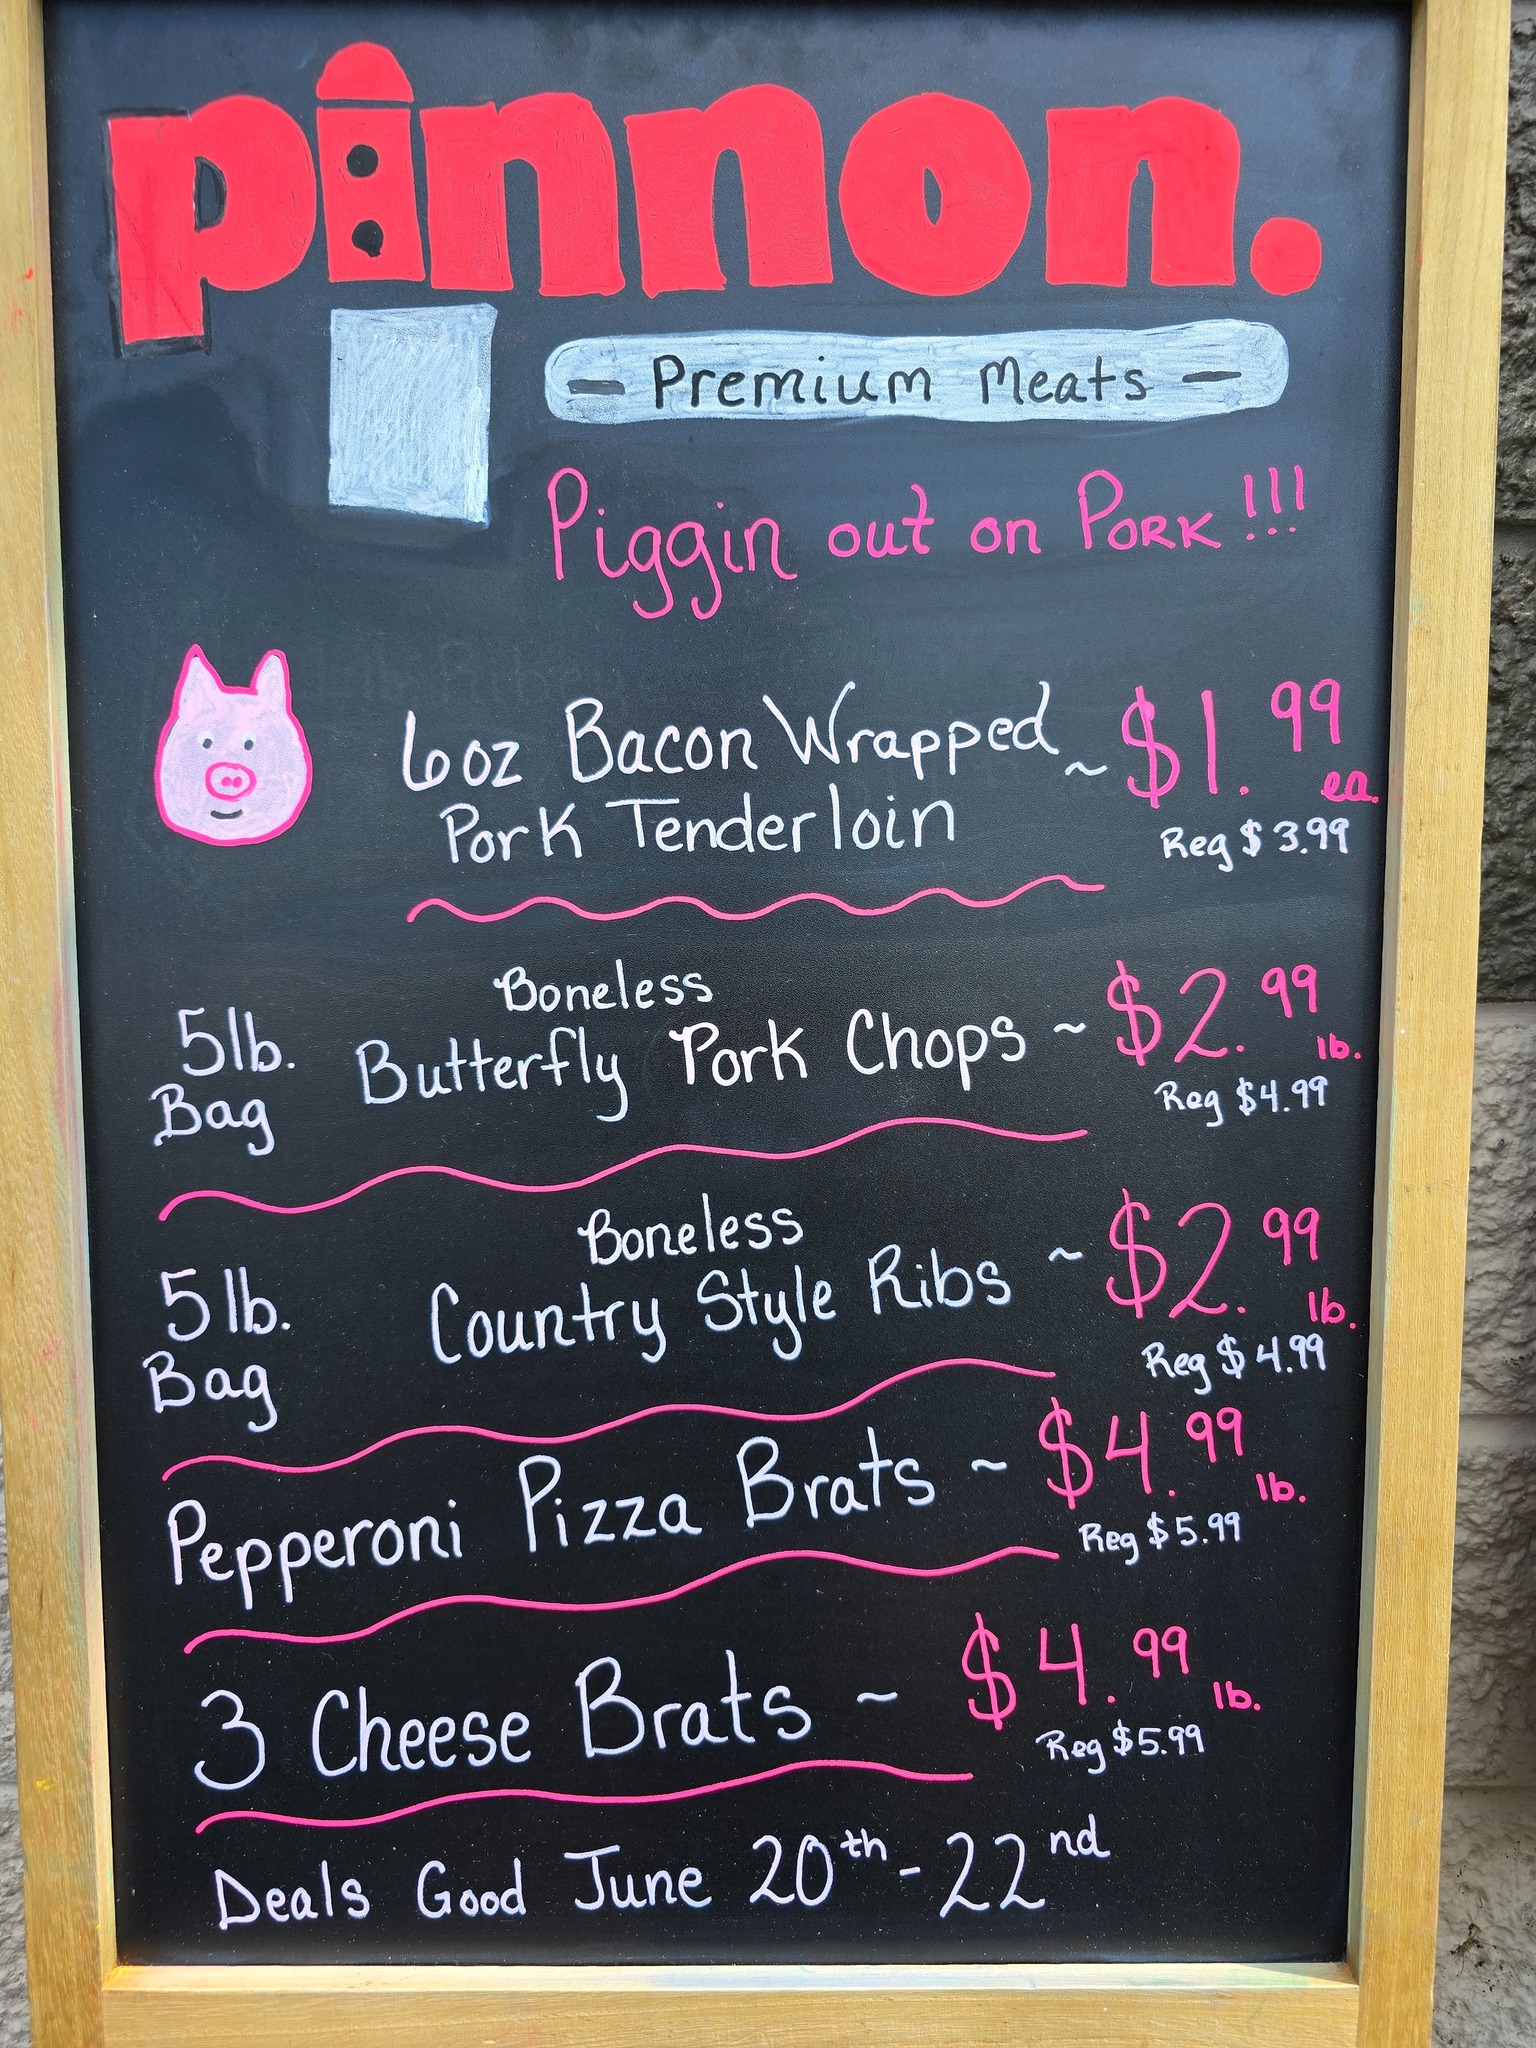 pinnon.
- Premium Meats -
Piggin out on Pork!!!
6oz Bacon Wrapped ~ $1.99 ea.
Pork Tenderloin
Reg $3.99
Boneless
5lb. Butterfly Pork Chops ~ $2.99 lb.
Bag
Reg $4.99
Boneless
5lb. Country Style Ribs ~ $2.99 lb.
Bag
Reg $4.99
Pepperoni Pizza Brats ~ $4.99 lb.
Reg $5.99
3 Cheese Brats ~ $4.99 lb.
Reg $5.99
Deals Good June 20th - 22nd